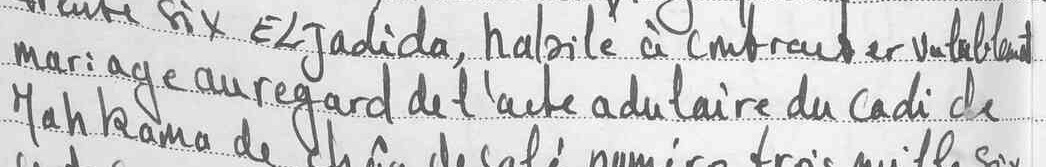 trente six EL Jadida, habile à contracter valablement
mariage au regard de l'acte adulaire du cadi de
Mahkama de
numéro trois mille six